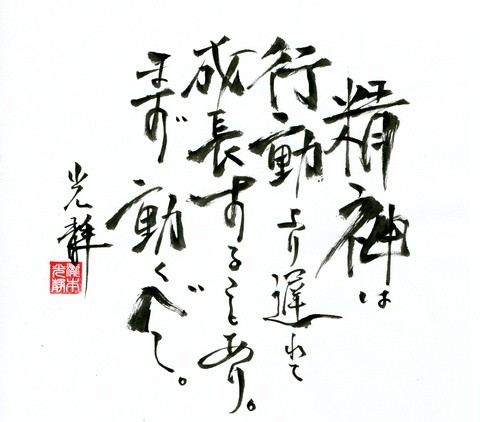 精神は
行動より遅れて
成長することあり。
まず動くべし。
光靜